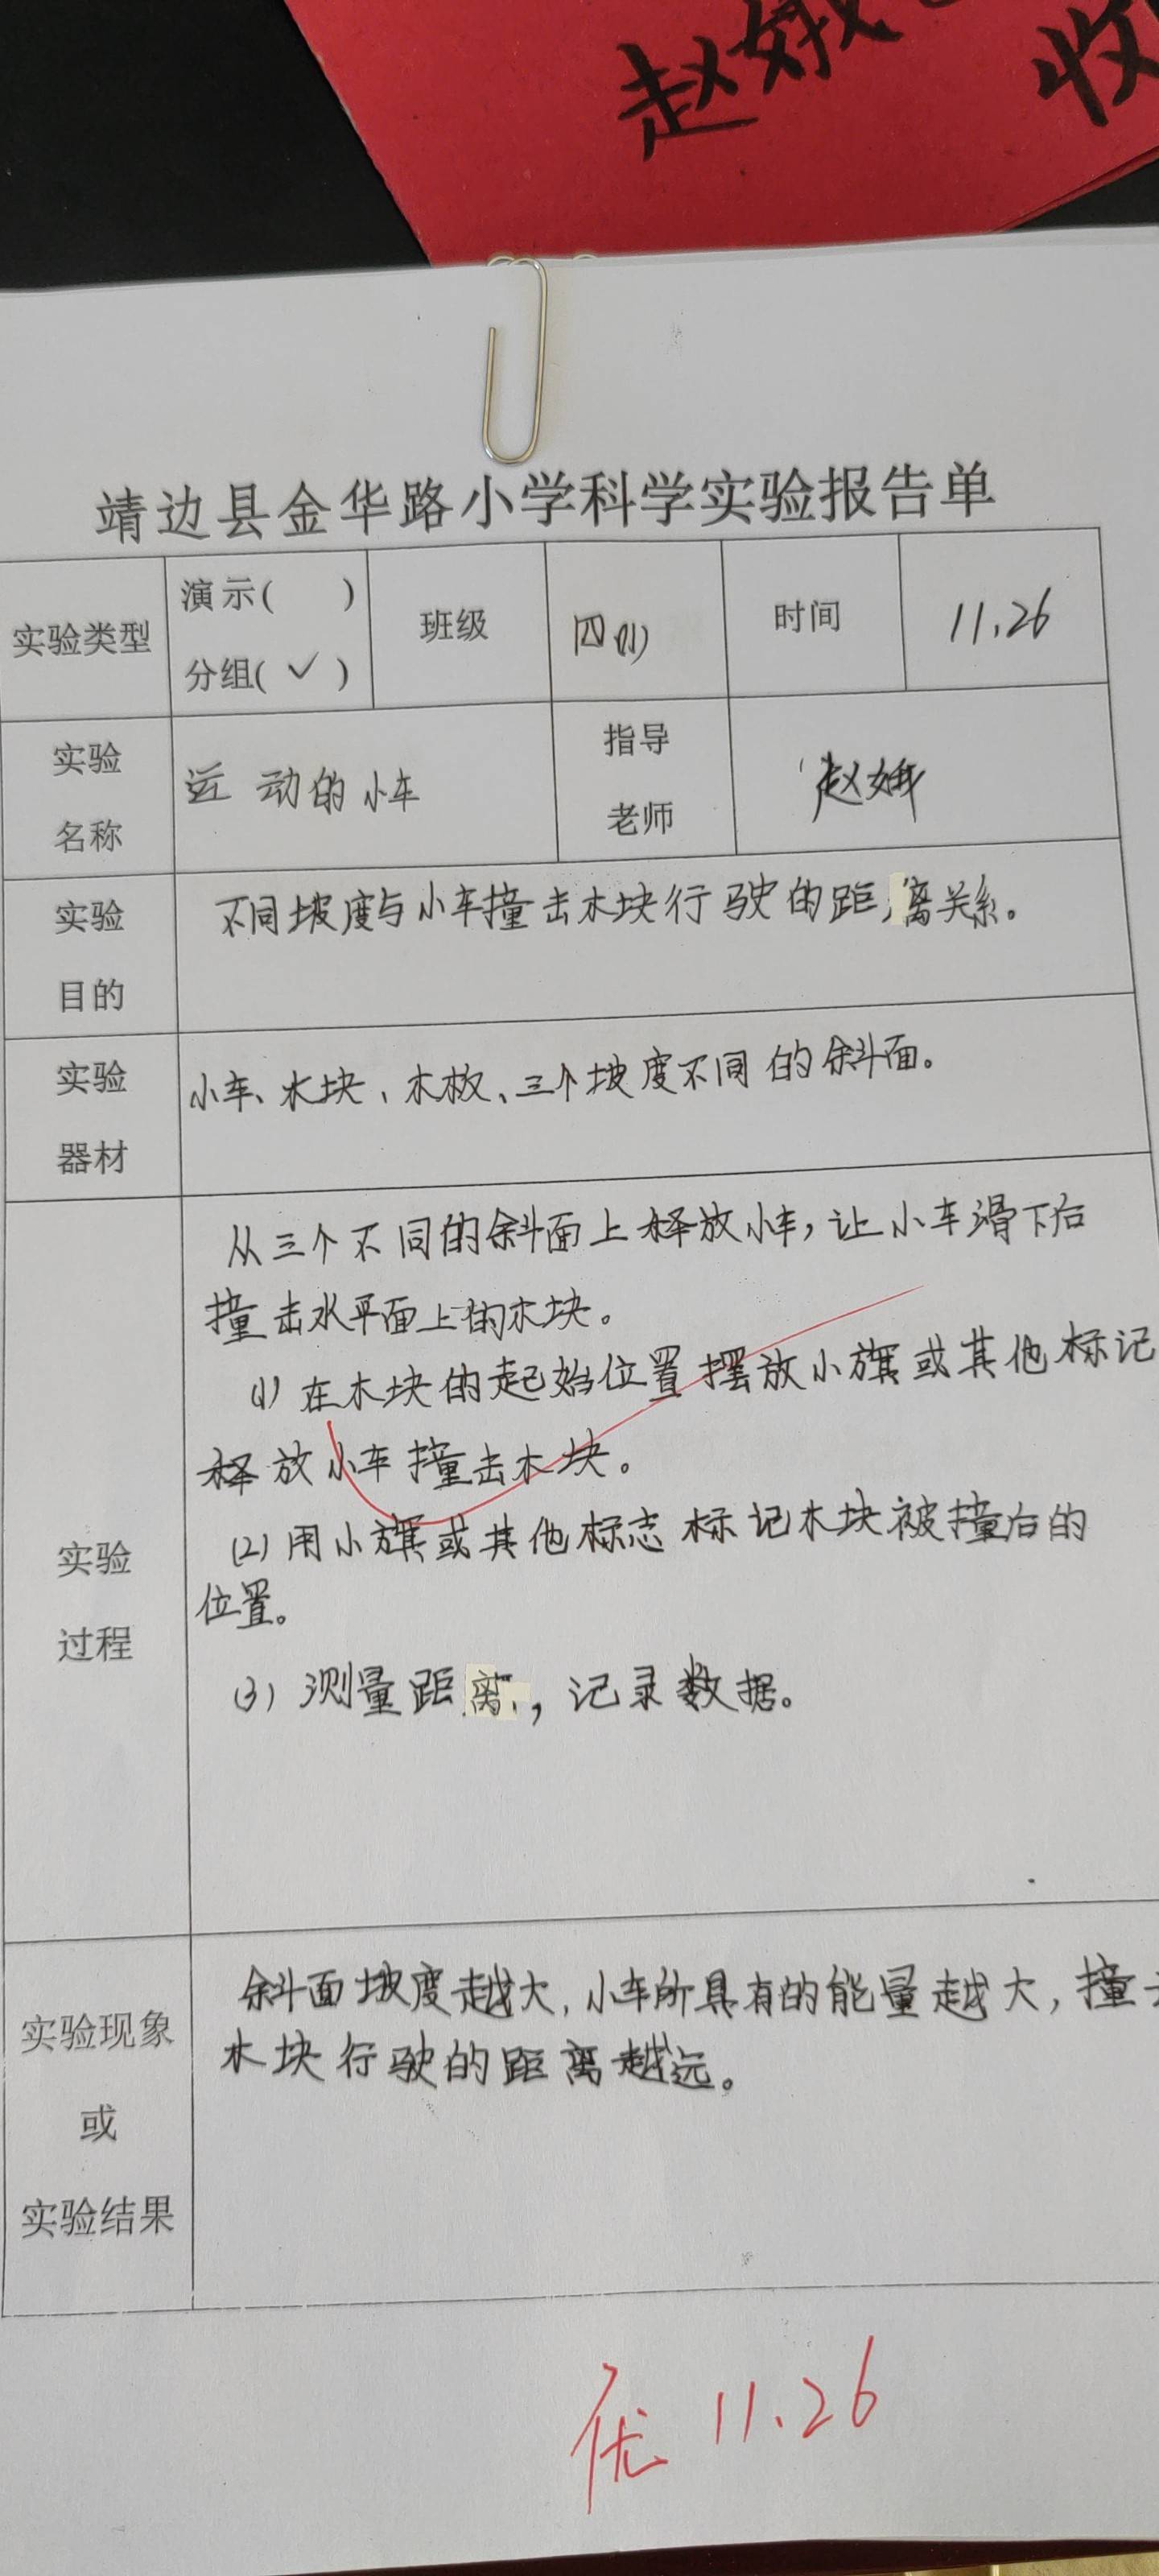 赵娥
收
靖边县金华路小学科学实验报告单
实验类型 演示( ) 分组( ✓ ) 班级 四(1) 时间 11.26
实验名称 运动的小车 指导老师 赵娥
实验目的 不同坡度与小车撞击木块行驶的距离关系。
实验器材 小车、木块、木板、三个坡度不同的斜面。
实验过程
从三个不同的斜面上释放小车,让小车滑下后
撞击水平面上的木块。
(1) 在木块的起始位置摆放小旗或其他标记
释放小车撞击木块。
(2) 用小旗或其他标志标记木块被撞后的
位置。
(3) 测量距离,记录数据。
实验现象或实验结果
斜面坡度越大,小车所具有的能量越大,撞击
木块行驶的距离越远。
优 11.26